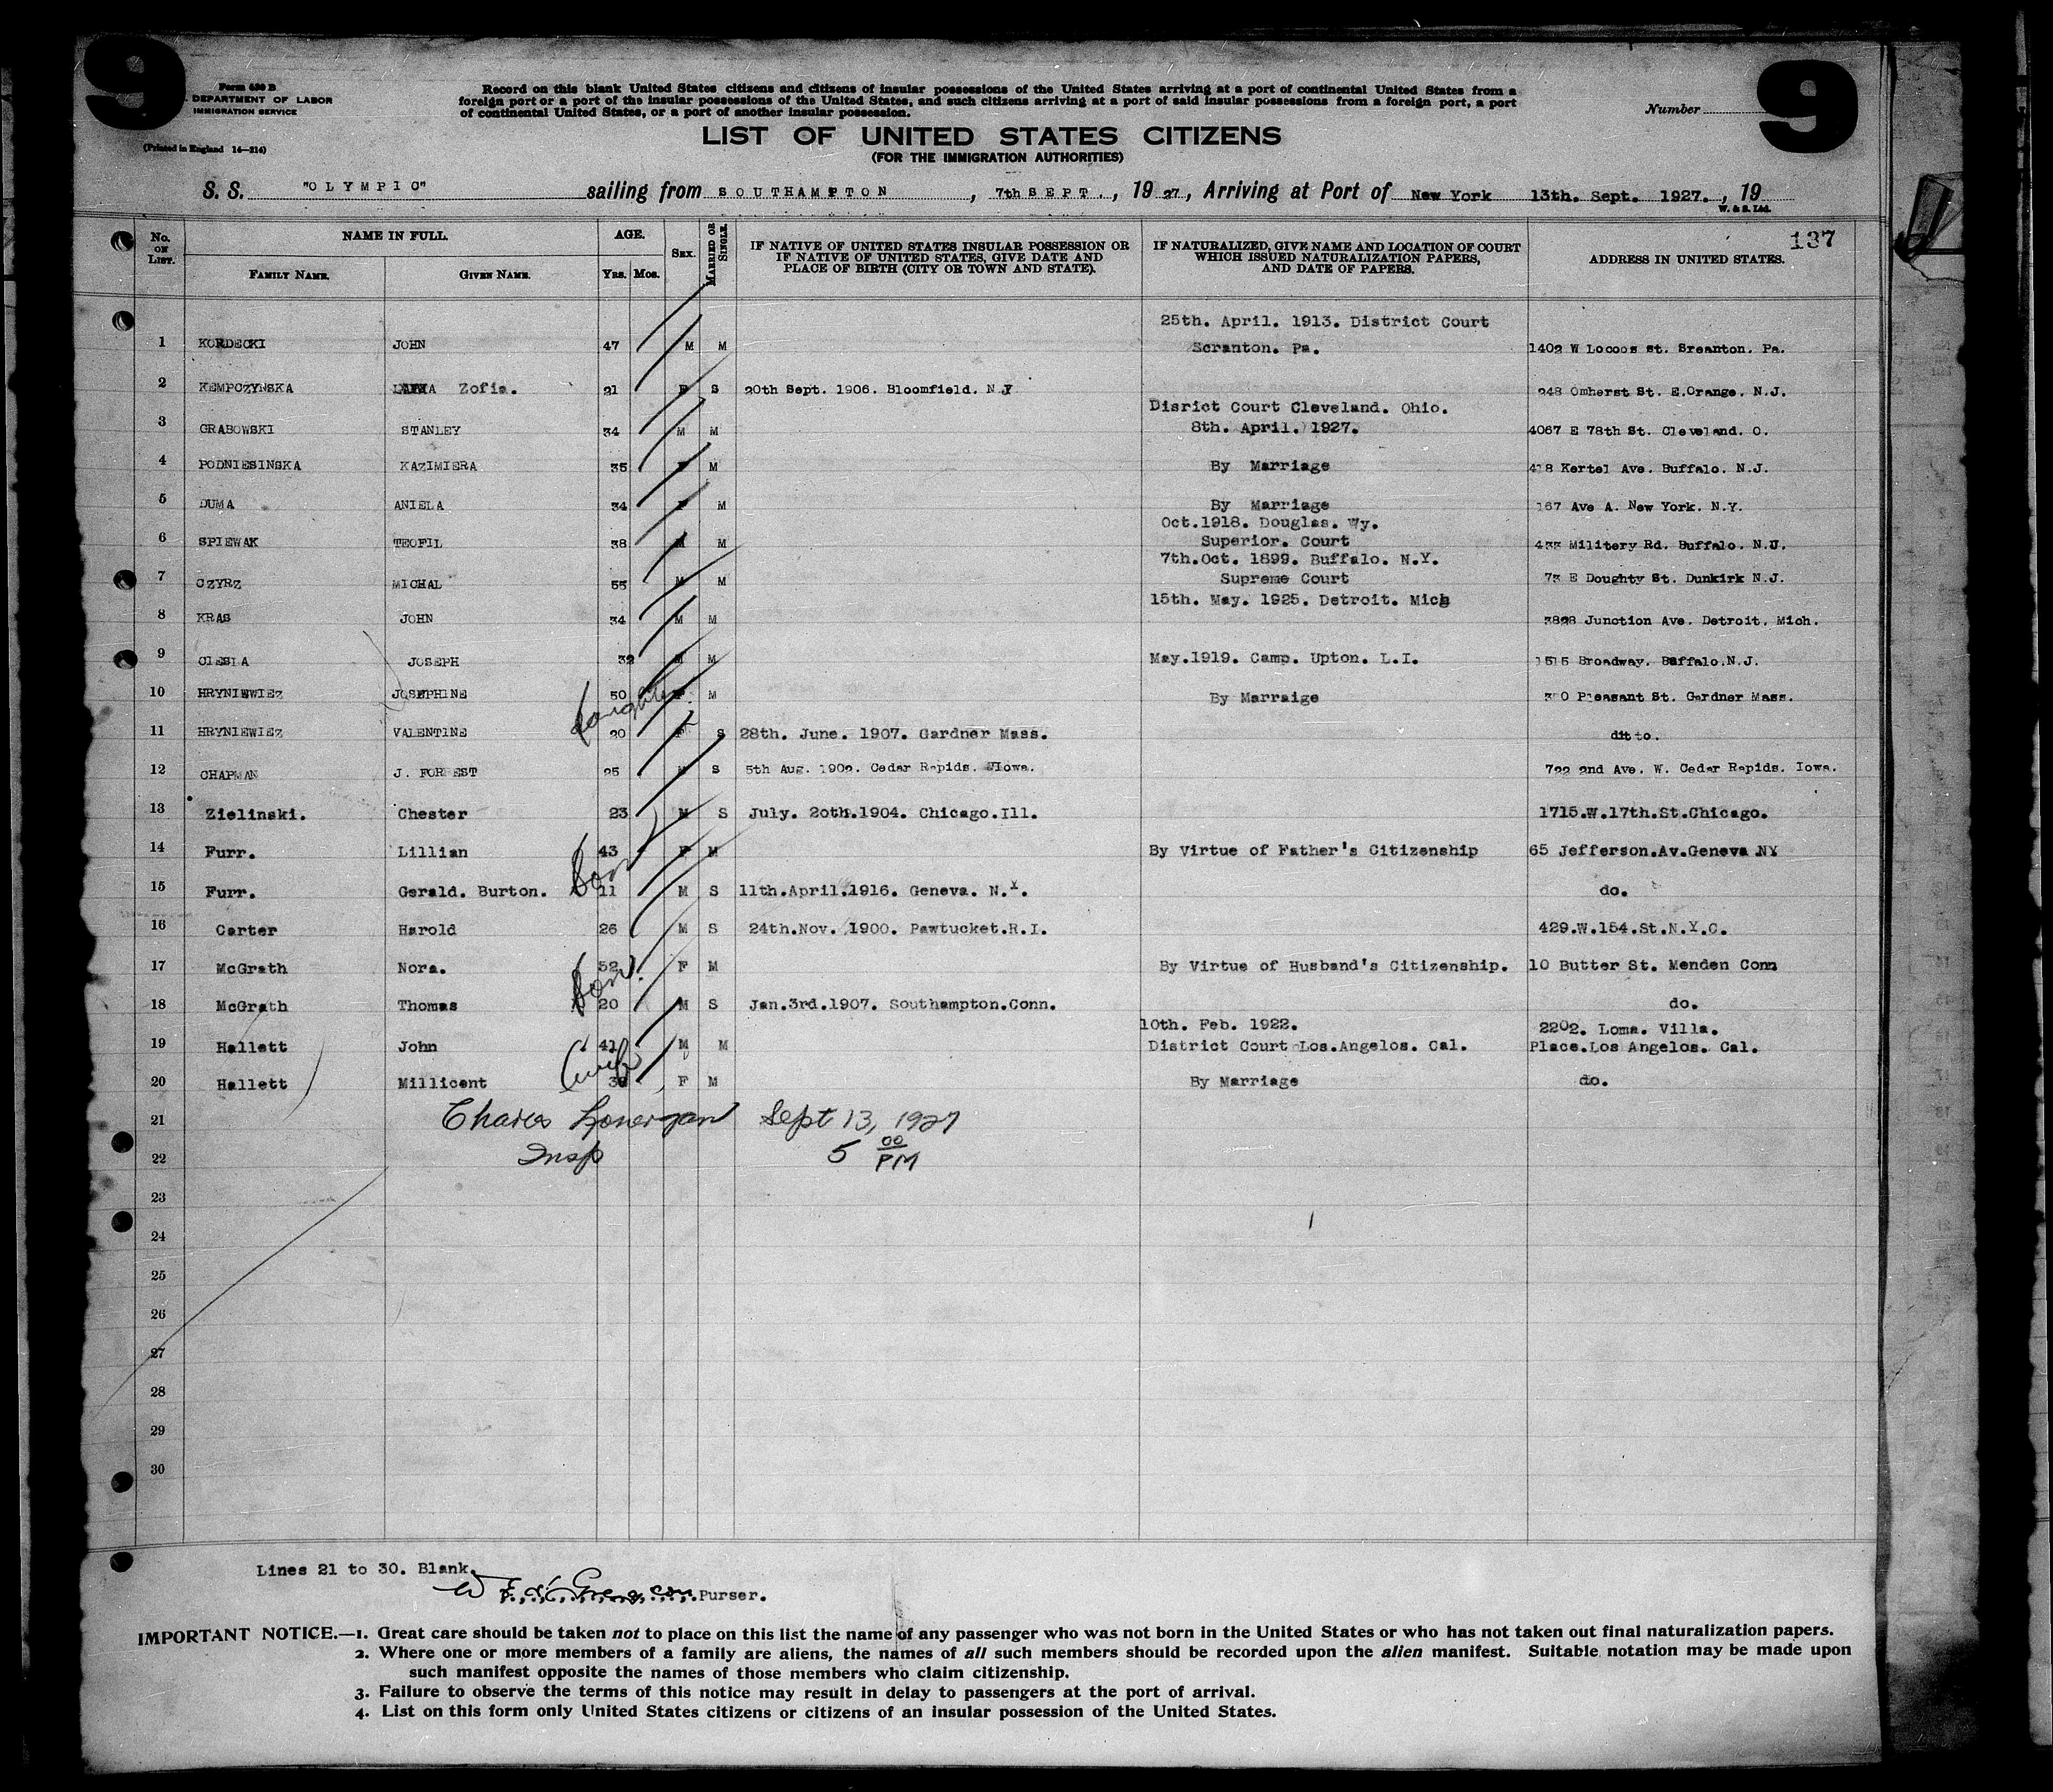 9
9
Form 630 B
DEPARTMENT OF LABOR
IMMIGRATION SERVICE
(Printed in England 14—214)
Record on this blank United States citizens and citizens of insular possessions of the United States arriving at a port of continental United States from a
foreign port or a port of the insular possessions of the United States, and such citizens arriving at a port of said insular possessions from a foreign port, a port
of continental United States, or a port of another insular possession.
Number
LIST OF UNITED STATES CITIZENS
(FOR THE IMMIGRATION AUTHORITIES)
S. S. "OLYMPIC" sailing from SOUTHAMPTON, 7th SEPT., 19 27, Arriving at Port of New York 13th. Sept. 1927., 19
W. & S. Ltd.
137
No. ON LIST. NAME IN FULL. FAMILY NAME. GIVEN NAME. AGE. YRS. MOS. SEX. MARRIED OR SINGLE. IF NATIVE OF UNITED STATES INSULAR POSSESSION OR IF NATIVE OF UNITED STATES, GIVE DATE AND PLACE OF BIRTH (CITY OR TOWN AND STATE). IF NATURALIZED, GIVE NAME AND LOCATION OF COURT WHICH ISSUED NATURALIZATION PAPERS, AND DATE OF PAPERS. ADDRESS IN UNITED STATES.
25th. April. 1913. District Court
1 KORDECKI JOHN 47 M M Scranton. Pa. 1402 W Locoos st. Sreanton. Pa.
2 KEMPCZYNSKA Zofia. 21 F S 20th Sept. 1906. Bloomfield. N.J 248 Omherst St. E.Orange. N.J.
Disrict Court Cleveland. Ohio.
3 GRABOWSKI STANLEY 34 M M 8th. April. 1927. 4067 E 78th St. Cleveland. O.
4 PODNIESINSKA KAZIMIERA 35 F M By Marriage 418 Kertel Ave. Buffalo. N.J.
5 DUMA ANIELA 34 F M By Marriage 167 Ave A. New York. N.Y.
Oct.1918. Douglas. Wy.
6 SPIEWAK TEOFIL 38 M M Superior. Court 433 Militery Rd. Buffalo. N.J.
7th.Oct. 1899. Buffalo. N.Y.
7 CZYRZ MICHAL 55 M M Supreme Court 73 E Doughty St. Dunkirk N.J.
15th. May. 1925. Detroit. Mich
8 KRAS JOHN 34 M M 3898 Junction Ave. Detroit. Mich.
9 CLESLA JOSEPH 32 M M May.1919. Camp. Upton. L.I. 1515 Broadway. Baffalo.N.J.
10 HRYNIEWIEZ JOSEPHINE 50 F M By Marraige Pleasant St. Gardner Mass.
daughter
11 HRYNIEWIEZ VALENTINE 20 F S 28th. June. 1907. Gardner Mass. ditto.
12 CHAPMAN J. FORREST 25 M S 5th Aug. 1902. Cedar Rapids. Iowa. 722 2nd Ave. W. Cedar Rapids. Iowa.
13 Zielinski. Chester 23 M S July. 20th.1904. Chicago.Ill. 1715.W.17th.St.Chicago.
14 Furr. Lillian 43 F M By Virtue of Father's Citizenship 65 Jefferson.Av.Geneva NY
Son
15 Furr. Gerald. Burton. 11 M S 11th.April.1916. Geneva. N.Y. do.
16 Carter Harold 26 M S 24th.Nov. 1900. Pawtucket.R.I. 429.W.154.St.N.Y.C.
17 McGrath Nora. 52 F M By Virtue of Husband's Citizenship. 10 Butter St. Menden Conn
Son
18 McGrath Thomas 20 M S Jan.3rd.1907. Southampton.Conn. do.
10th. Feb. 1922. 2202. Loma. Villa.
19 Hallett John 41 M M District Court Los.Angelos. Cal. Place.Los Angelos. Cal.
wife
20 Hallett Millicent 38 F M By Marriage do.
21 Chares Lonergan Sept 13, 1927
22 Insp 5 00 PM
23
24
25
26
27
28
29
30
Lines 21 to 30. Blank.
Purser.
IMPORTANT NOTICE.—1. Great care should be taken not to place on this list the name of any passenger who was not born in the United States or who has not taken out final naturalization papers.
2. Where one or more members of a family are aliens, the names of all such members should be recorded upon the alien manifest. Suitable notation may be made upon
such manifest opposite the names of those members who claim citizenship.
3. Failure to observe the terms of this notice may result in delay to passengers at the port of arrival.
4. List on this form only United States citizens or citizens of an insular possession of the United States.